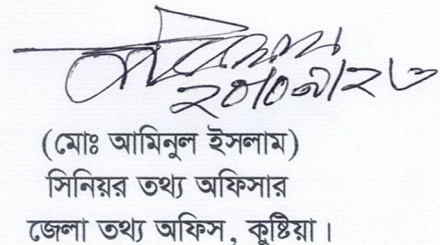 (মোঃ আমিনুল ইসলাম)
সিনিয়র তথ্য অফিসার
জেলা তথ্য অফিস, কুষ্টিয়া।